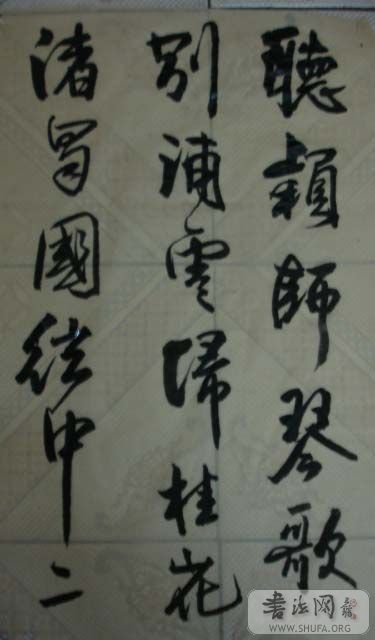 聽穎師琴歌
別浦雲歸桂花
渚蜀國絃中二
書法网
WWW.SHUFA.ORG